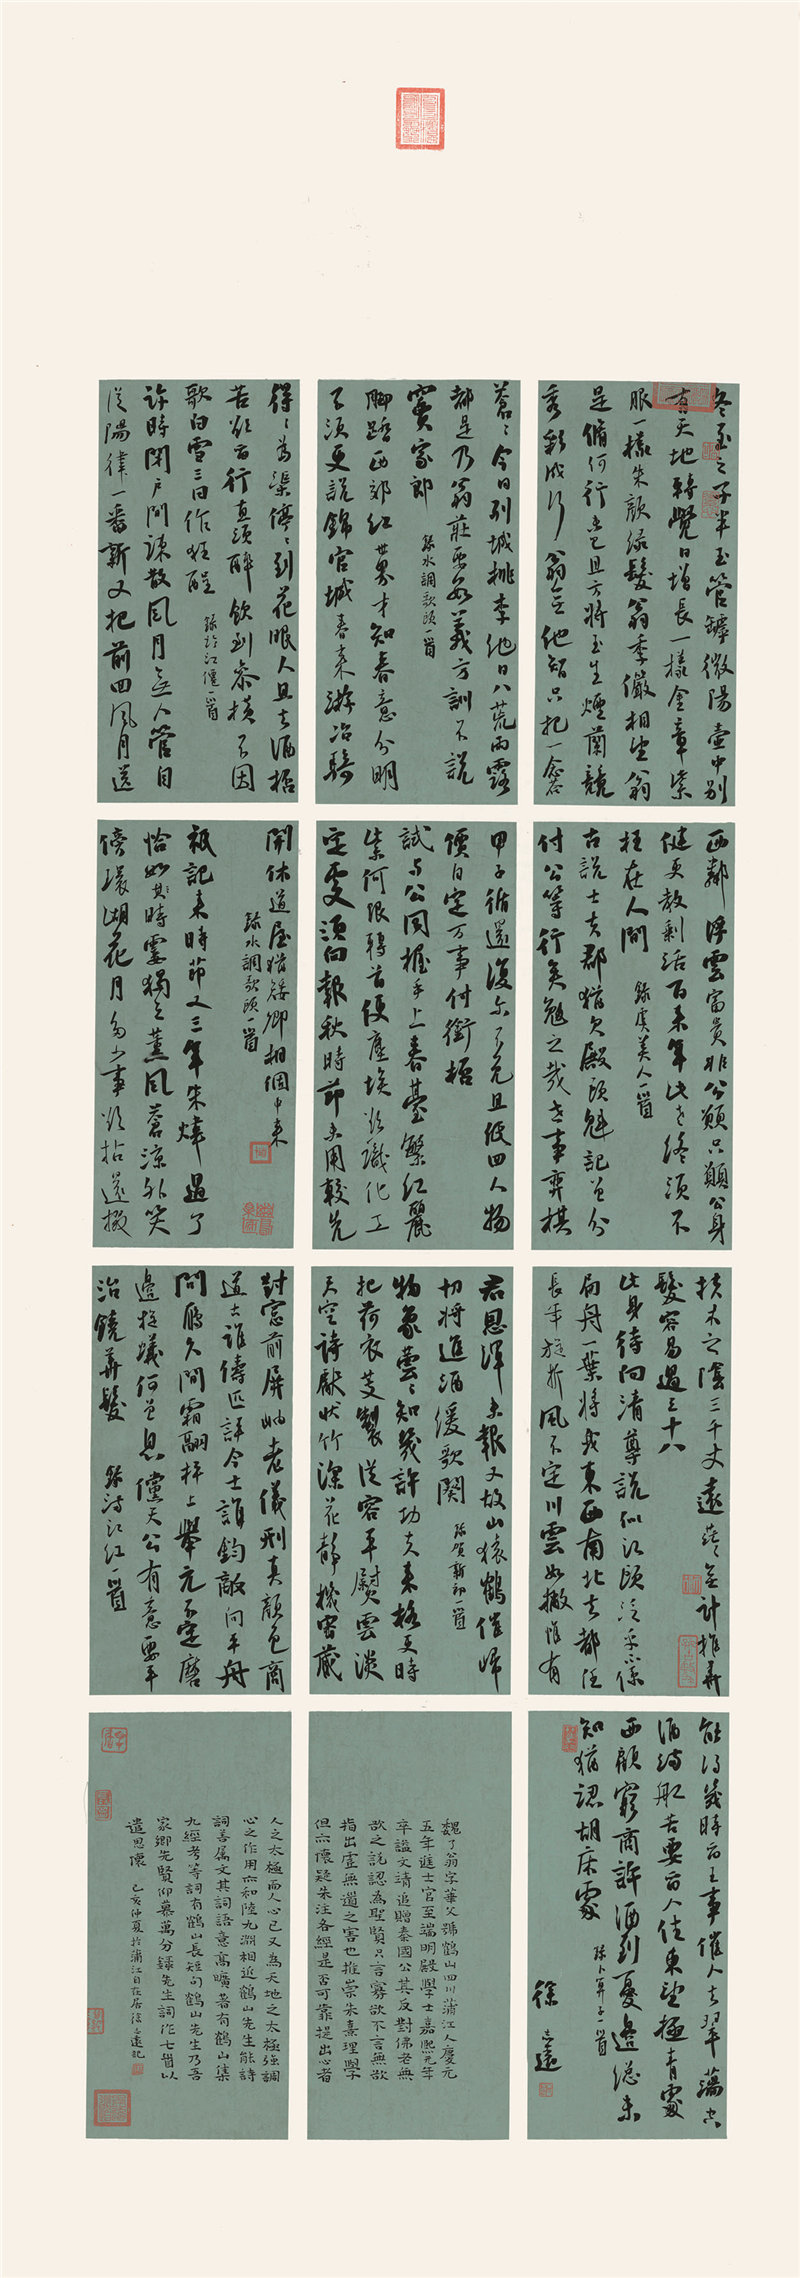 冬至之子半玉管罅微陽壺中別
有天地轉覺日增長一樣金章紫
服一樣朱顏綠髮翁季儼相望翁
是脩何行未已且方將玉生煙蘭競
秀彩成行翁無他智只把一念答
蒼〻今日列城桃李他日八荒雨露
都是乃翁莊要如義方訓不說
竇家郎 錄水調歌頭一首
腳踏西郊紅世界才知春意分明
不須更說錦官城春來游冶騎
得〻為渠停〻到花眼人且去酒桮
苦欲留行直須醉飲到參橫不因
歌白雪三日作狂酲 錄臨江僊一首
許時閉戶間疎散風月無人管自
從陽律一番新又把前回風月送
西鄰浮雲富貴非公願只願公身
健更教剩活百來年此老終須不
枉在人間 錄虞美人一首
古說士夫郡猶欠殿頭魁記曾分
付公等行矣勉之哉老事弈棋
甲子循還復尔只免且低回人物
價自定萬事付銜桮
試與公同握手上春臺繁紅麗
紫何限轉首便塵埃欲識化工
定處須向報秋時節未用較先
開休道屋猶矮卿相個中來
錄水調歌頭一首
秪記來時節又三年朱煒過了
恰如其時霎獨立薰風蒼涼外笑
傍環湖花月多少事欲拈還掇
扶木之陰三千丈遠茫〻無計推華
髮容易過三十八
此身待向清尊說似江頭泛乎不係
扁舟一葉將我東西南北去都任
長年旋折風不定川雲如撇惟有
君恩渾未報又故山猿鶴催歸
切將進酒緩歌闋 錄賀新郎一首
物象蕓〻知幾許功夫來格更時
把荷衣芰製從容平熨雲淡
天空詩獻狀竹深花靜機密藏
對窗前屏岫老儀刑真顏色商
道古誰儔匹評今士誰鈞敵向平舟
問雁久閒霜翮枰上舉元不定磨
邊旋蟻何曾息儻天公有意要平
治饒華髮 錄滿江紅一首
能得幾時留王事催人去翠蕩
酒船苦要留人住東望極青齊
西顧窮商許酒到憂邊總未
知猶認胡床處 錄卜算子一首
徐 遠
魏了翁字華父號鶴山四川蒲江人慶元
五年進士官至端明殿學士嘉熙元年
卒謚文靖追贈秦國公其反對佛老無
欲之說認為聖賢只言寡欲不言無欲
指出虛無道之害也推崇朱熹理學
但亦懷疑朱注各經是否可靠提出心者
人之太極而人心已又為天地之太極強調
心之作用亦和陸九淵相近鶴山先生能詩
詞善屬文其詞語意高曠著有鶴山集
九經考等詞有鶴山長短句鶴山先生乃吾
家鄉先賢仰慕萬分錄先生詞作七首以
遣思懷 己亥仲夏於蒲江自在居徐 遠記